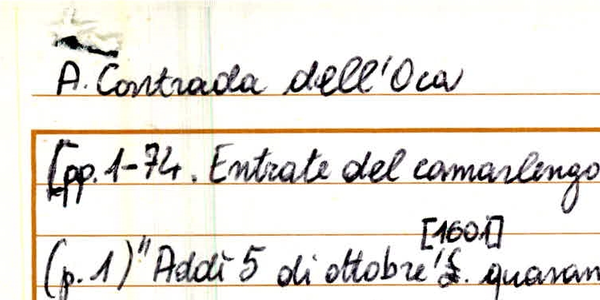 A. Contrada dell'Oca
[pp. 1-74. Entrate del camarlengo
[1601]
(p. 1) "Addì 5 di ottobre £. quaran